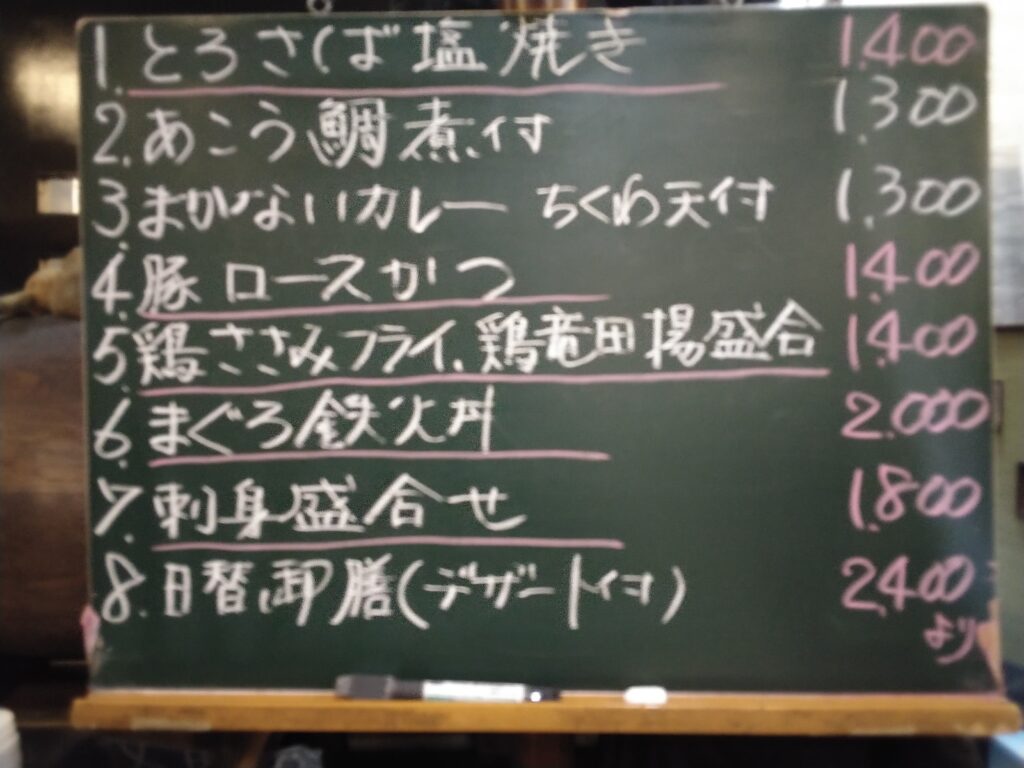 1. とろさば塩焼き 1.400
2. あこう鯛煮付 1.300
3. まかないカレー ちくわ天付 1.300
4.豚ロースかつ 1.400
5. 鶏ささみフライ、鶏竜田揚盛合 1.400
6. まぐろ鉄火丼 2.000
7. 刺身盛合せ 1.800
8. 日替御膳(デザート付) 2.400
より